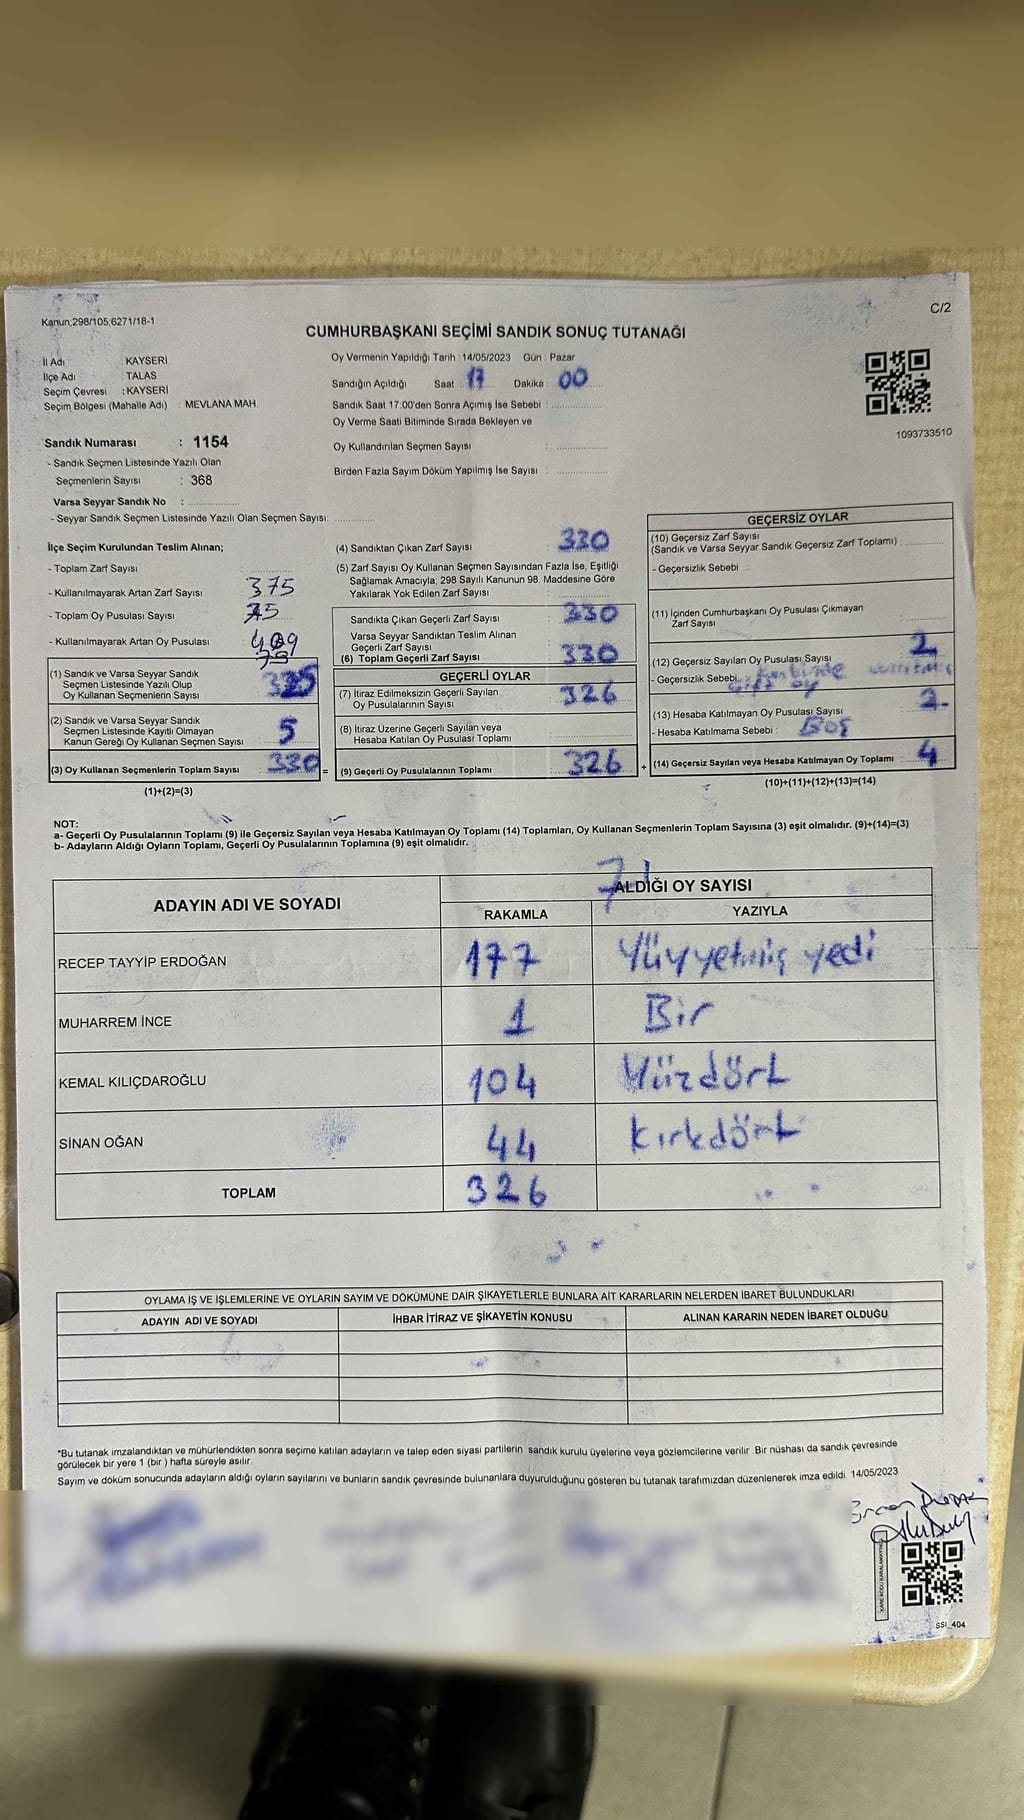 Kanun;298/105;6271/18-1
C/2
CUMHURBAŞKANI SEÇİMİ SANDIK SONUÇ TUTANAĞI
İl Adı KAYSERİ
İlçe Adı TALAS
Seçim Çevresi : KAYSERİ
Seçim Bölgesi (Mahalle Adı) : MEVLANA MAH.
Sandık Numarası : 1154
- Sandık Seçmen Listesinde Yazılı Olan
Seçmenlerin Sayısı : 368
Varsa Seyyar Sandık No :
- Seyyar Sandık Seçmen Listesinde Yazılı Olan Seçmen Sayısı:
Oy Vermenin Yapıldığı Tarih : 14/05/2023 Gün : Pazar
Sandığın Açıldığı Saat 17 Dakika : 00
Sandık Saat 17:00'den Sonra Açımış İse Sebebi :
Oy Verme Saati Bitiminde Sırada Bekleyen ve
Oy Kullandırılan Seçmen Sayısı :
Birden Fazla Sayım Döküm Yapılmış İse Sayısı :
1093733510
İlçe Seçim Kurulundan Teslim Alınan;
- Toplam Zarf Sayısı
- Kullanılmayarak Artan Zarf Sayısı 375
- Toplam Oy Pusulası Sayısı
- Kullanılmayarak Artan Oy Pusulası
(1) Sandık ve Varsa Seyyar Sandık
Seçmen Listesinde Yazılı Olup
Oy Kullanan Seçmenlerin Sayısı 325
(2) Sandık ve Varsa Seyyar Sandık
Seçmen Listesinde Kayıtlı Olmayan
Kanun Gereği Oy Kullanan Seçmen Sayısı 5
(3) Oy Kullanan Seçmenlerin Toplam Sayısı : 330 =
(1)+(2)=(3)
(4) Sandıktan Çıkan Zarf Sayısı : 330
(5) Zarf Sayısı Oy Kullanan Seçmen Sayısından Fazla İse, Eşitliği
Sağlamak Amacıyla, 298 Sayılı Kanunun 98. Maddesine Göre
Yakılarak Yok Edilen Zarf Sayısı :
Sandıkta Çıkan Geçerli Zarf Sayısı : 330
Varsa Seyyar Sandıktan Teslim Alınan
Geçerli Zarf Sayısı
(6) Toplam Geçerli Zarf Sayısı : 330
GEÇERLİ OYLAR
(7) İtiraz Edilmeksizin Geçerli Sayılan
Oy Pusulalarının Sayısı : 326
(8) İtiraz Üzerine Geçerli Sayılan veya
Hesaba Katılan Oy Pusulası Toplamı
(9) Geçerli Oy Pusulalarının Toplamı : 326 +
GEÇERSİZ OYLAR
(10) Geçersiz Zarf Sayısı
(Sandık ve Varsa Seyyar Sandık Geçersiz Zarf Toplamı) :
- Geçersizlik Sebebi :
(11) İçinden Cumhurbaşkanı Oy Pusulası Çıkmayan
Zarf Sayısı
(12) Geçersiz Sayılan Oy Pusulası Sayısı 2
- Geçersizlik Sebebi :
Çift oy
(13) Hesaba Katılmayan Oy Pusulası Sayısı 2
- Hesaba Katılmama Sebebi : Boş
(14) Geçersiz Sayılan veya Hesaba Katılmayan Oy Toplamı : 4
(10)+(11)+(12)+(13)=(14)
NOT:
a- Geçerli Oy Pusulalarının Toplamı (9) ile Geçersiz Sayılan veya Hesaba Katılmayan Oy Toplamı (14) Toplamları, Oy Kullanan Seçmenlerin Toplam Sayısına (3) eşit olmalıdır. (9)+(14)=(3)
b- Adayların Aldığı Oyların Toplamı, Geçerli Oy Pusulalarının Toplamına (9) eşit olmalıdır.
ADAYIN ADI VE SOYADI
ALDIĞI OY SAYISI
RAKAMLA YAZIYLA
RECEP TAYYİP ERDOĞAN 177 Yüzyetmiş yedi
MUHARREM İNCE 1 Bir
KEMAL KILIÇDAROĞLU 104 Yüzdört
SİNAN OĞAN 44 Kırkdört
TOPLAM 326
OYLAMA İŞ VE İŞLEMLERİNE VE OYLARIN SAYIM VE DÖKÜMÜNE DAİR ŞİKAYETLERLE BUNLARA AİT KARARLARIN NELERDEN İBARET BULUNDUKLARI
ADAYIN ADI VE SOYADI İHBAR İTİRAZ VE ŞİKAYETİN KONUSU ALINAN KARARIN NEDEN İBARET OLDUĞU
*Bu tutanak imzalandıktan ve mühürlendikten sonra seçime katılan adayların ve talep eden siyasi partilerin sandık kurulu üyelerine veya gözlemcilerine verilir. Bir nüshası da sandık çevresinde
görülecek bir yere 1 (bir) hafta süreyle asılır.
Sayım ve döküm sonucunda adayların aldığı oyların sayılarını ve bunların sandık çevresinde bulunanlara duyurulduğunu gösteren bu tutanak tarafımızdan düzenlenerek imza edildi. 14/05/2023
SSI_404